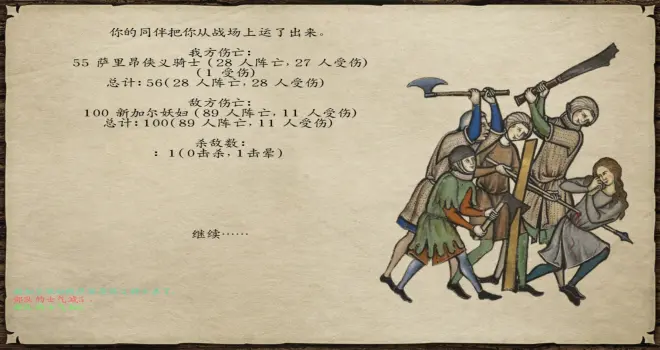 你的同伴把你从战场上运了出来。
我方伤亡:
55 萨里昂侠义骑士 (28 人阵亡,27 人受伤)
(1 受伤)
总计:56(28 人阵亡,28 人受伤)
敌方伤亡:
100 新加尔妖妇 (89 人阵亡,11 人受伤)
总计:100(89 人阵亡,11 人受伤)
杀敌数:
: 1(0击杀,1击晕)
继续……